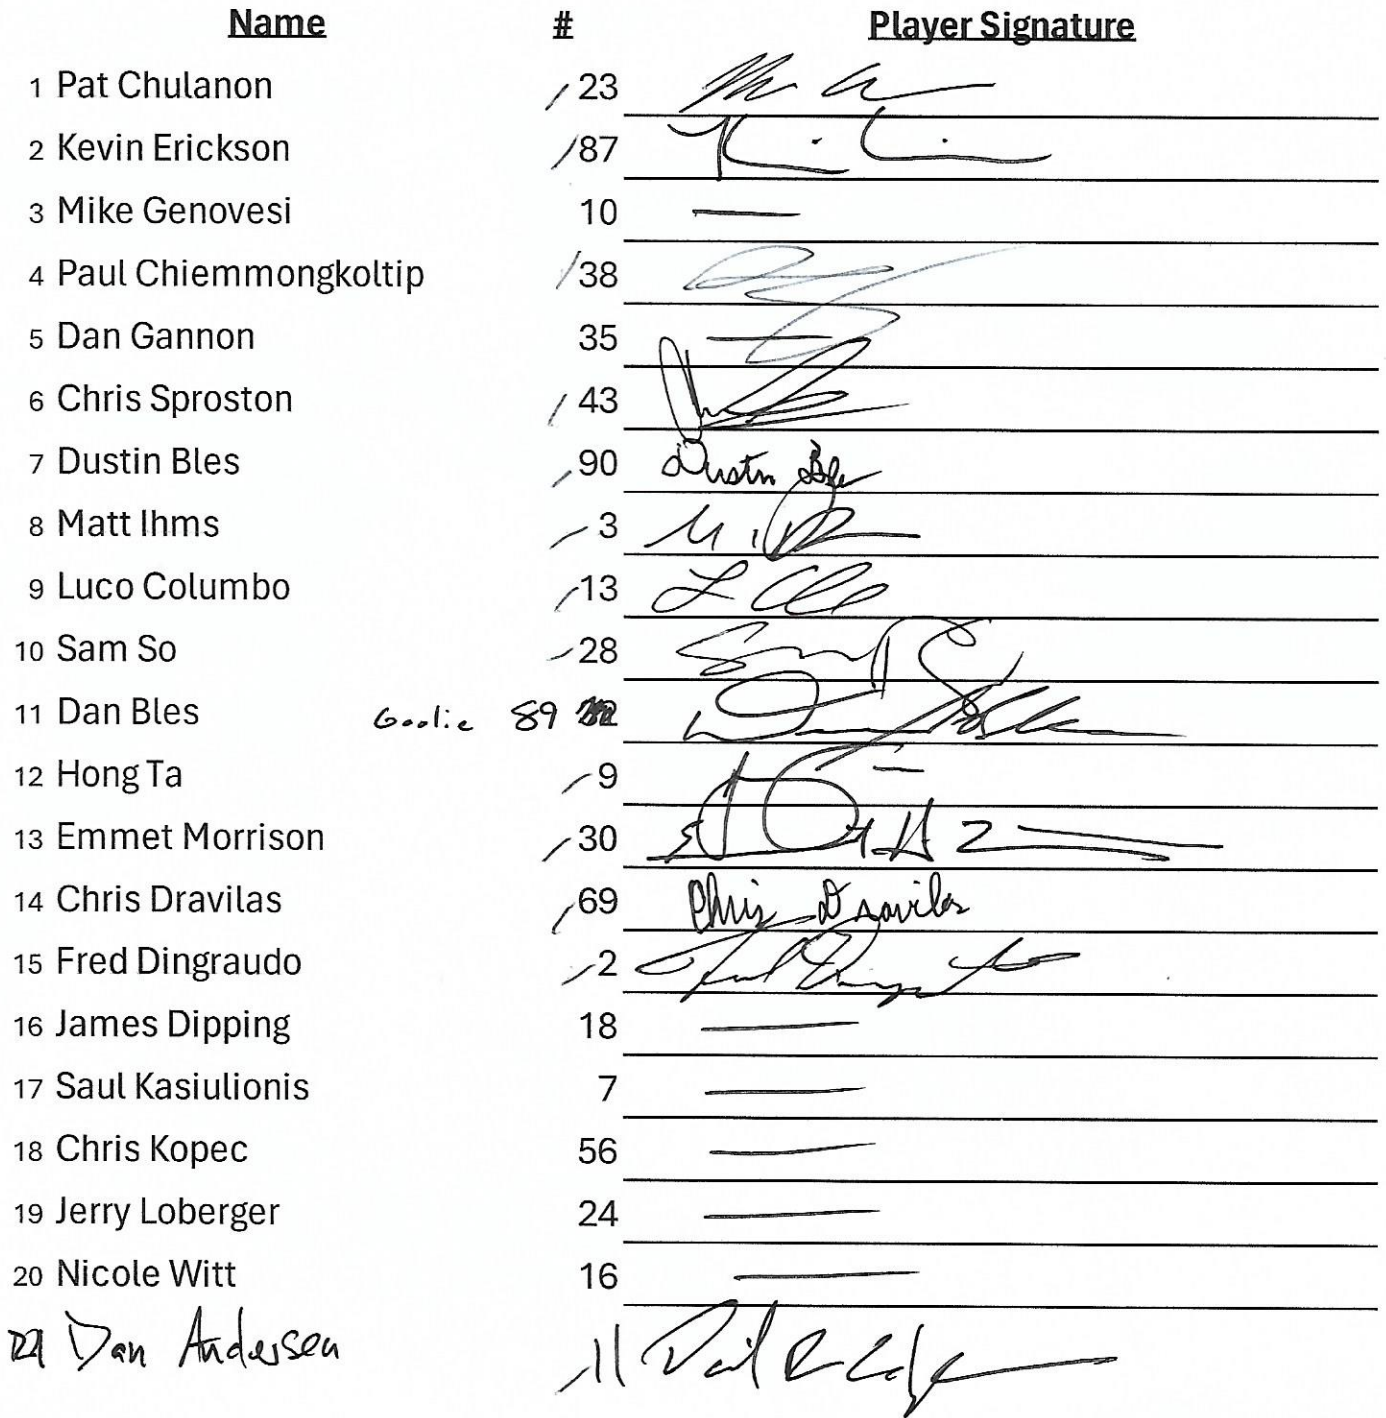 Name # Player Signature
1 Pat Chulanon / 23
2 Kevin Erickson / 87
3 Mike Genovesi 10 —
4 Paul Chiemmongkoltip / 38
5 Dan Gannon 35 —
6 Chris Sproston / 43
7 Dustin Bles / 90 Dustin Bles
8 Matt Ihms / 3
9 Luco Columbo / 13
10 Sam So / 28
11 Dan Bles Goalie 89
12 Hong Ta / 9
13 Emmet Morrison / 30
14 Chris Dravilas / 69 Chris Dravilas
15 Fred Dingraudo / 2
16 James Dipping 18 —
17 Saul Kasiulionis 7 —
18 Chris Kopec 56 —
19 Jerry Loberger 24 —
20 Nicole Witt 16 —
Dan Andersen / 11